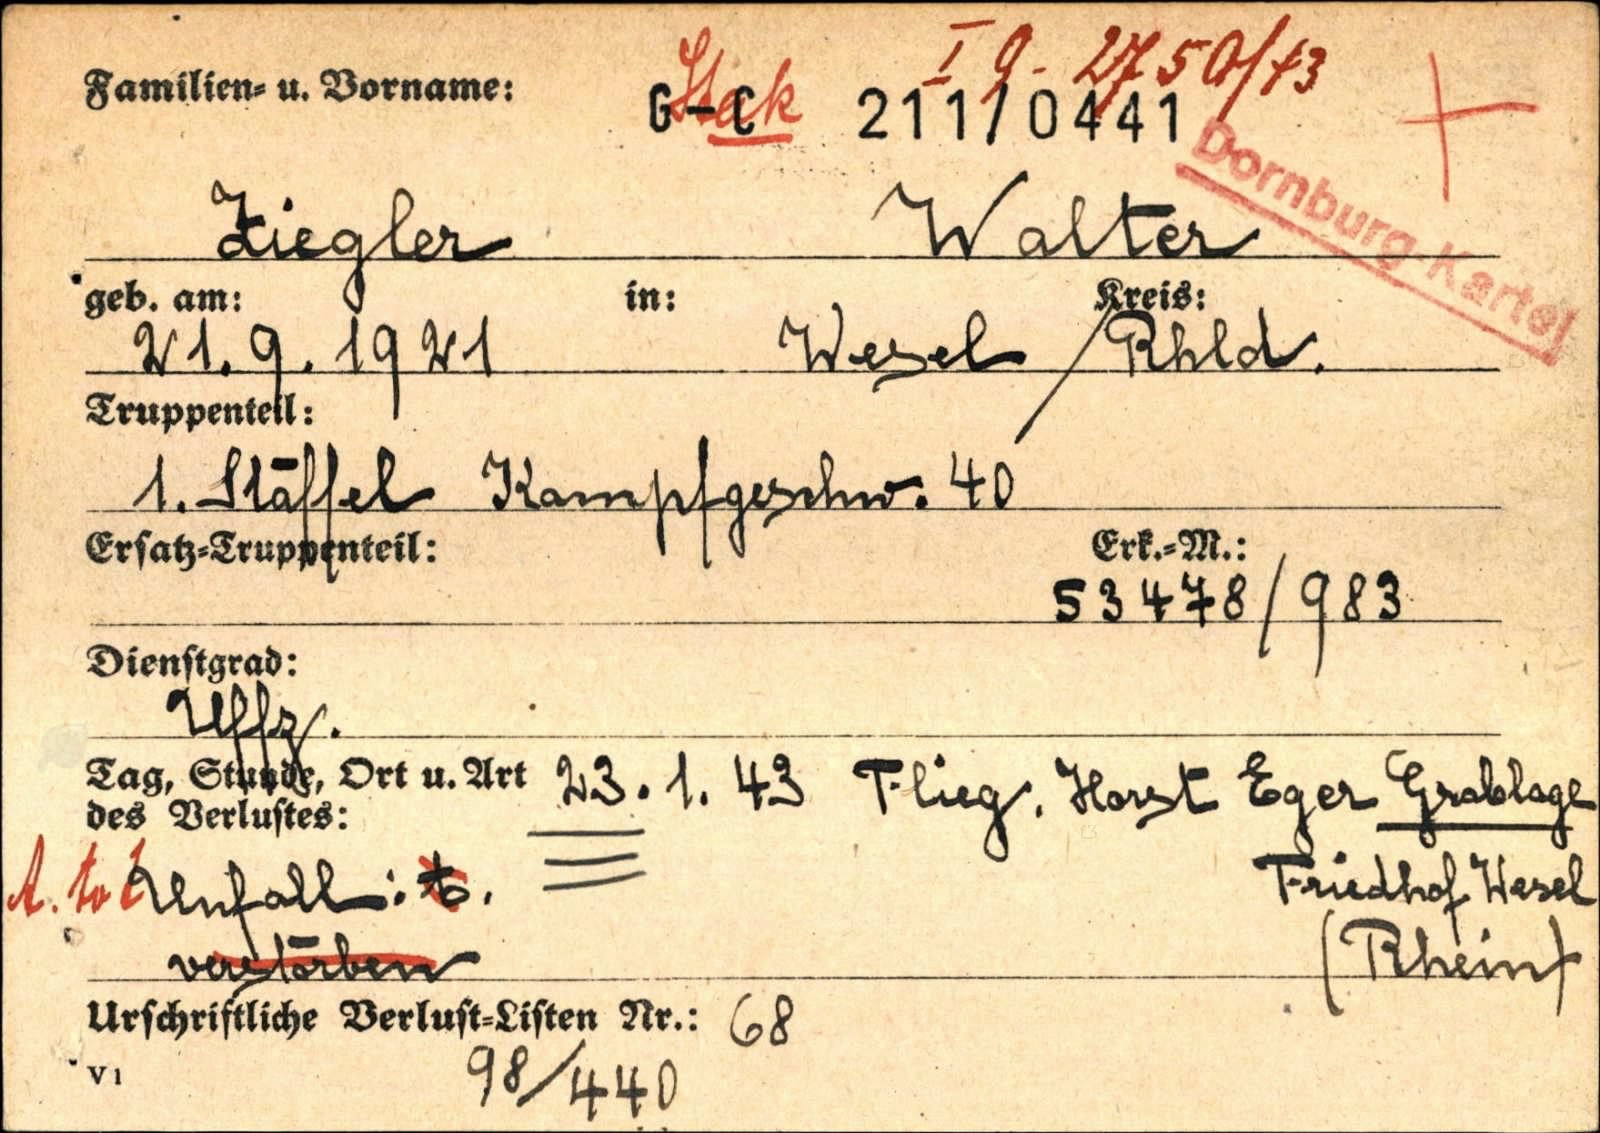 I 9. 2750/43
Familien- u. Vorname:
G-C 211/0441
Dornburg-Kartei
Ziegler Walter
geb. am: in: Kreis:
21.9.1921 Wesel / Rhld.
Truppenteil:
1. Staffel Kampfgeschw. 40
Ersatz-Truppenteil: Erk.-M.:
53478/983
Dienstgrad:
Uffz.
Tag, Stunde, Ort u. Art 23.1.43 Flieg. Horst Eger Grablage
des Verlustes:
A. tot Unfall: t. Friedhof Wesel
verstorben (Rhein)
Urschriftliche Verlust-Listen Nr.: 68
V 1 98/440